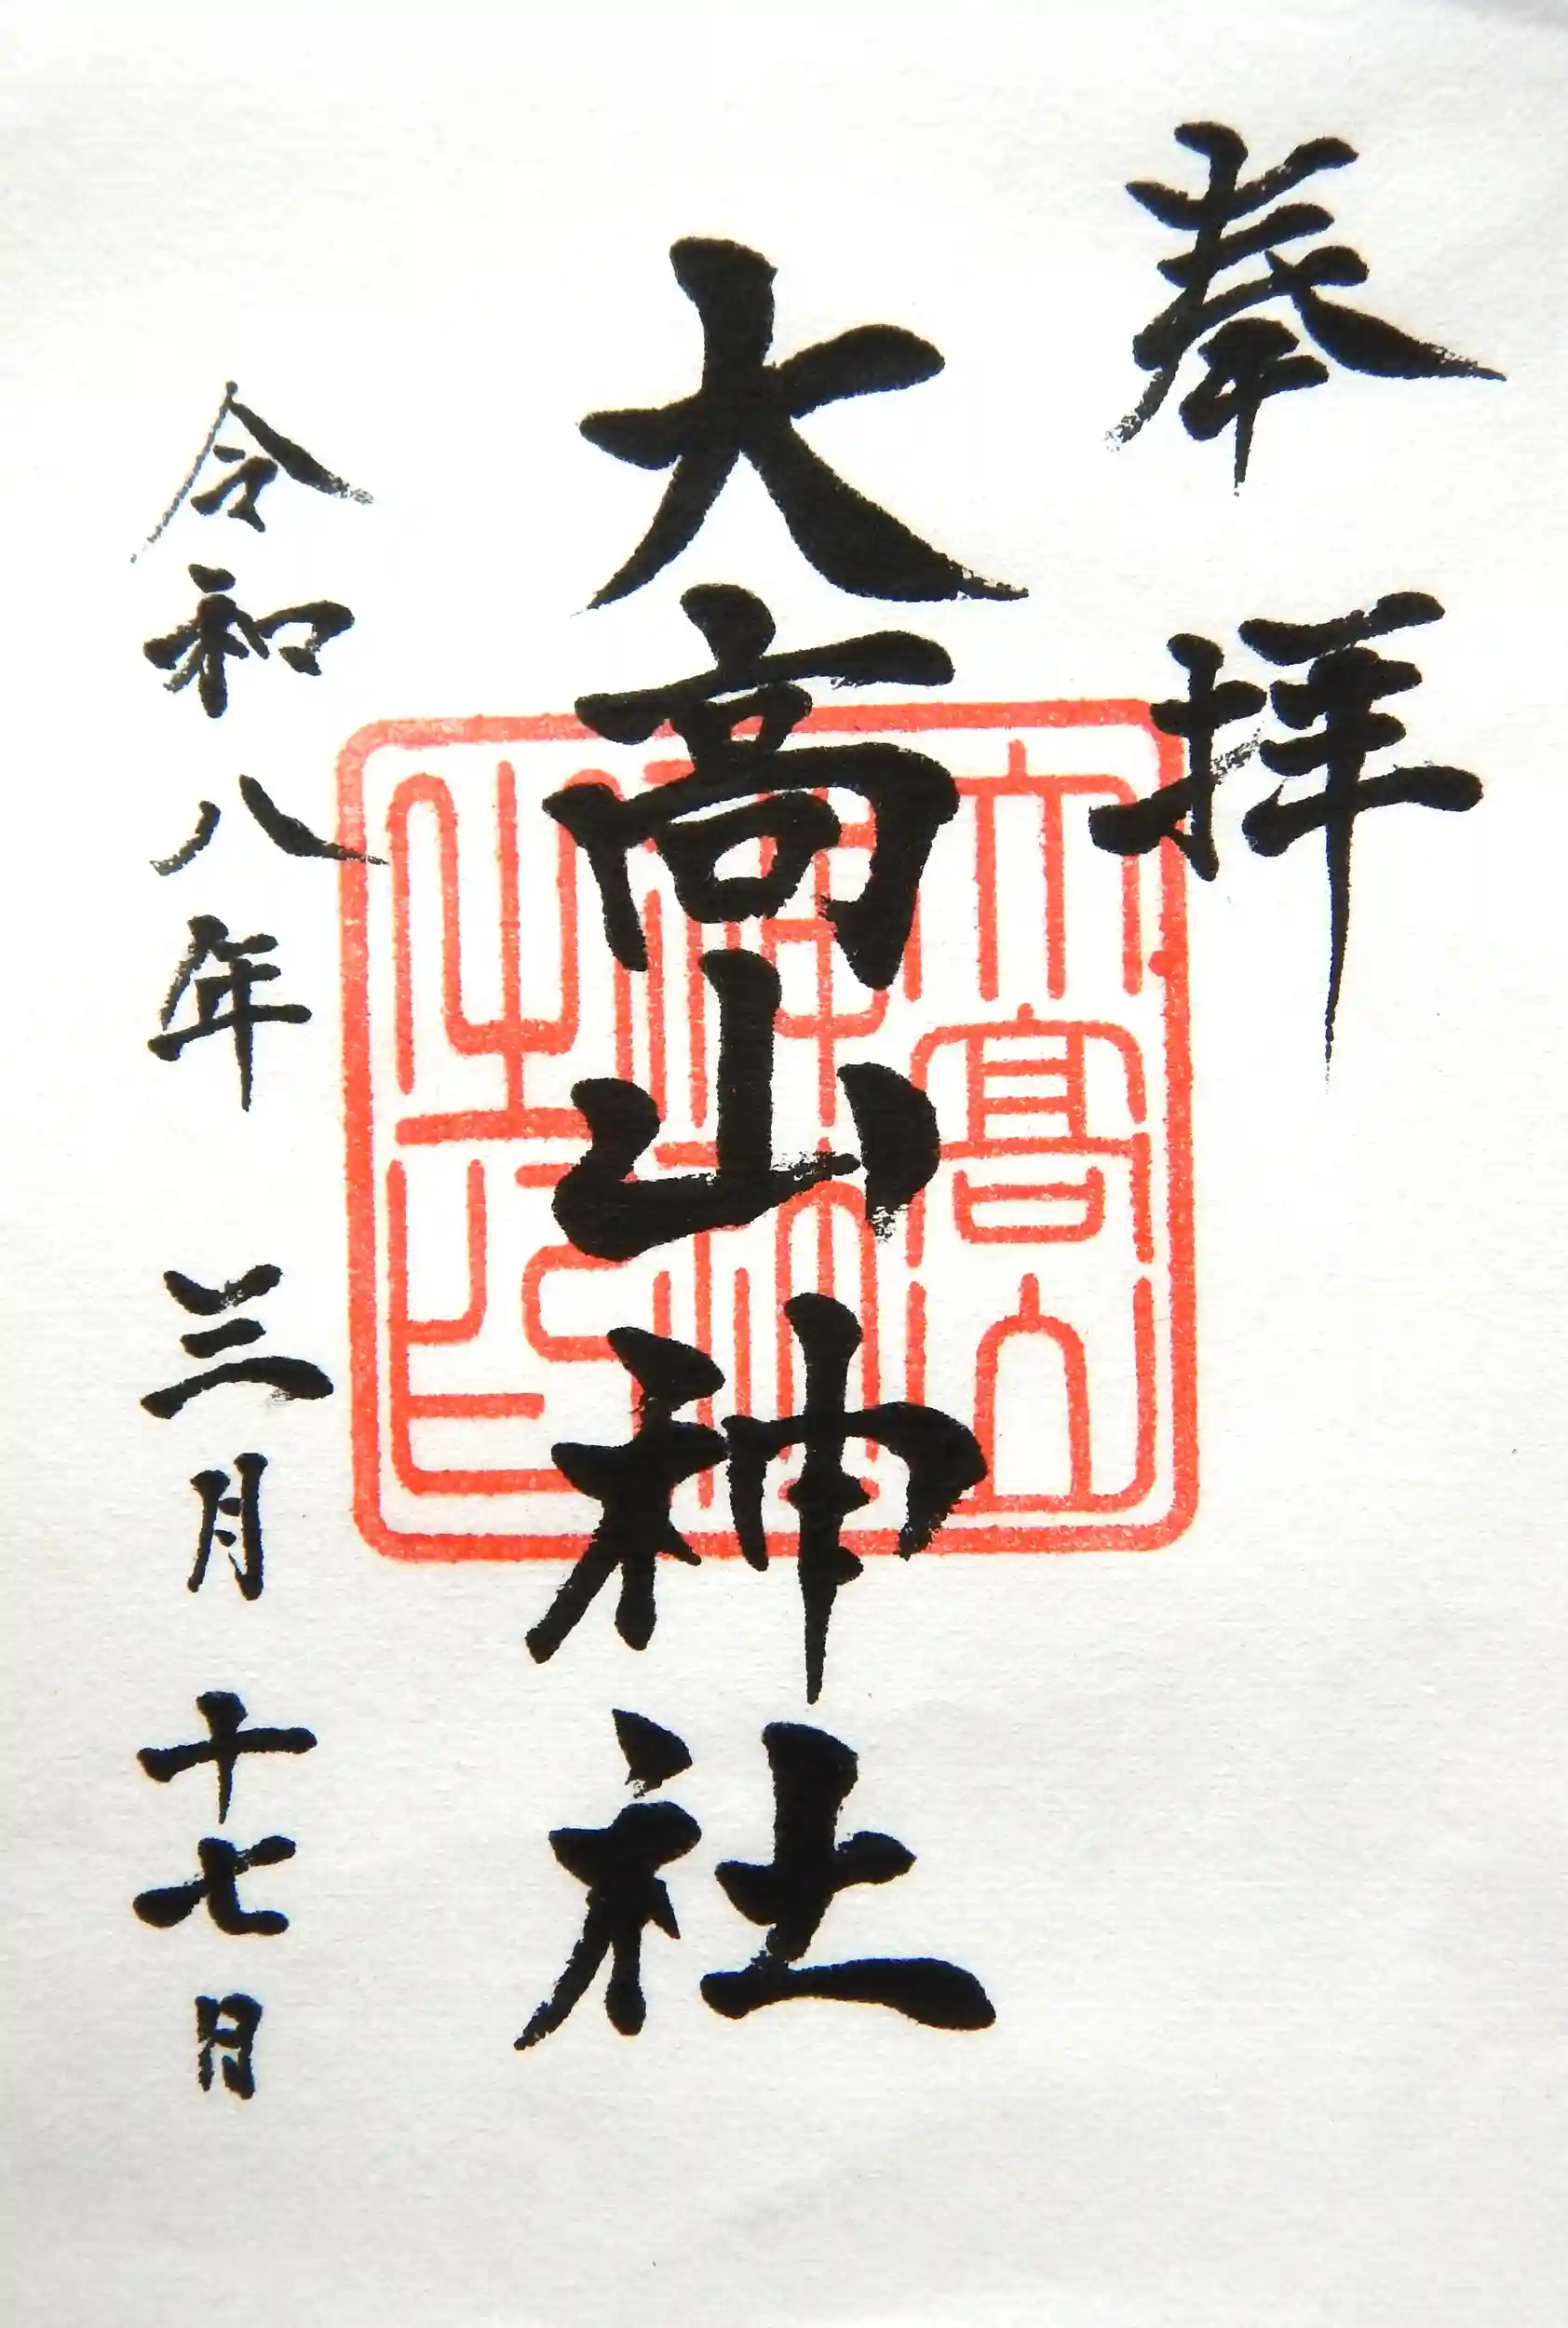 奉拝
大高山神社
大高山神社之印
令和八年 三月十七日